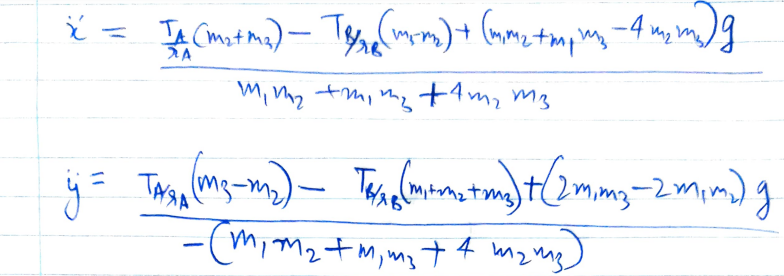 ẍ = T_A/r_A (m₂+m₃) − T_B/r_B (m₃−m₂) + (m₁m₂+m₁m₃−4m₂m₃)g
m₁m₂ + m₁m₃ + 4m₂m₃
ÿ = T_A/r_A (m₃−m₂) − T_B/r_B (m₁+m₂+m₃) + (2m₁m₃−2m₁m₂)g
−(m₁m₂ + m₁m₃ + 4m₂m₃)